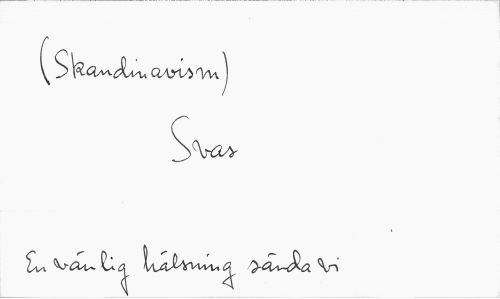 (Skandinavism)
Svas
En vänlig hälsning sända vi